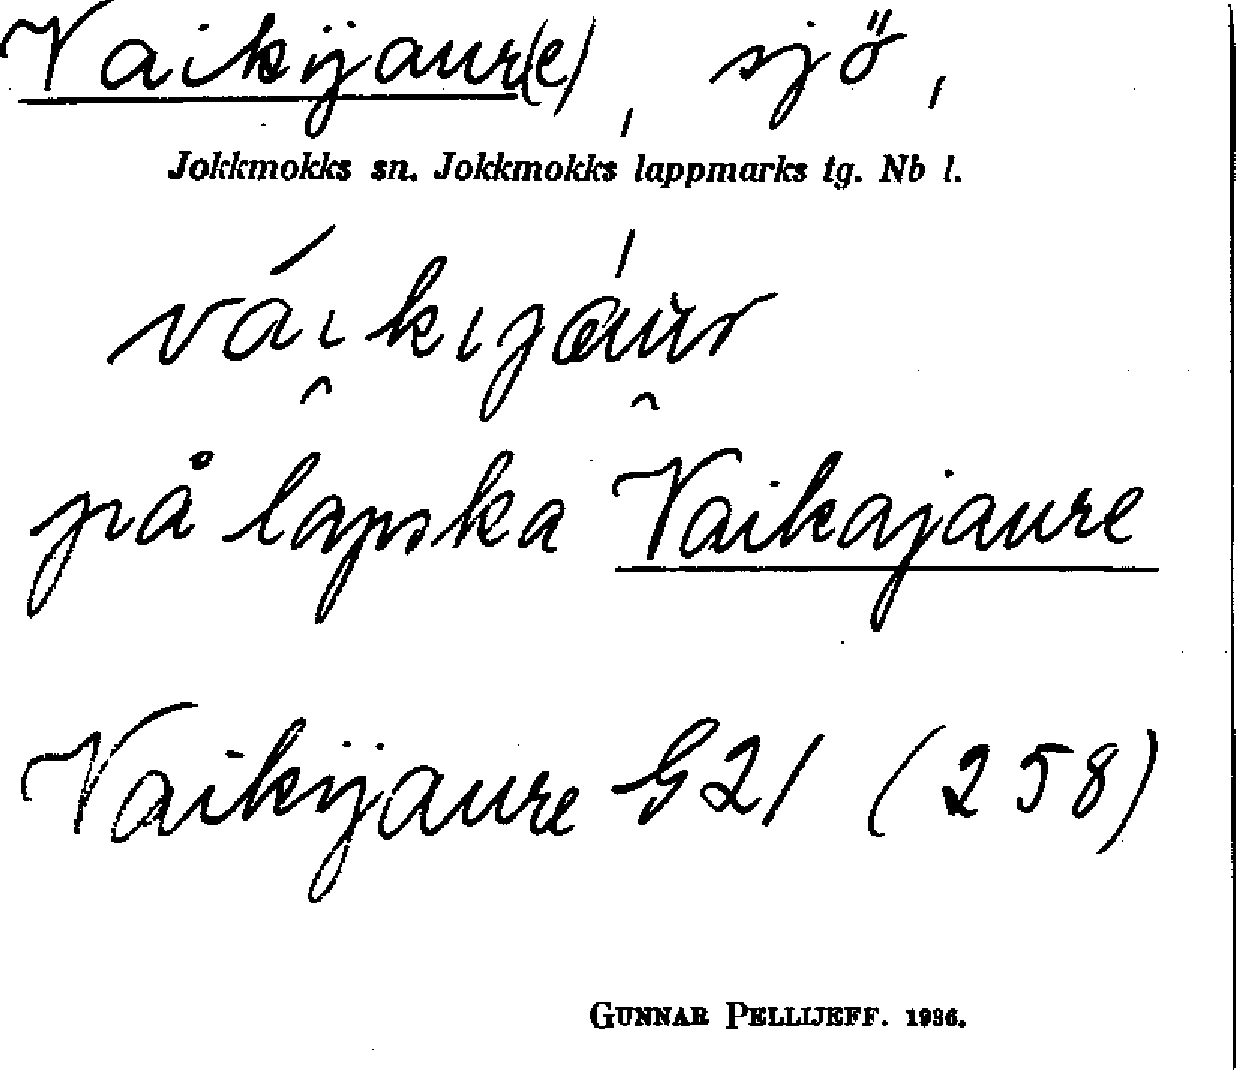 Vaikijaur(e), sjö,
Jokkmokks sn. Jokkmokks lappmarks tg. Nb l.
váıkıjáur
på lapska Vaikajaure
Vaikijaure G21 (258)
GUNNAR PELLIJEFF. 1936.